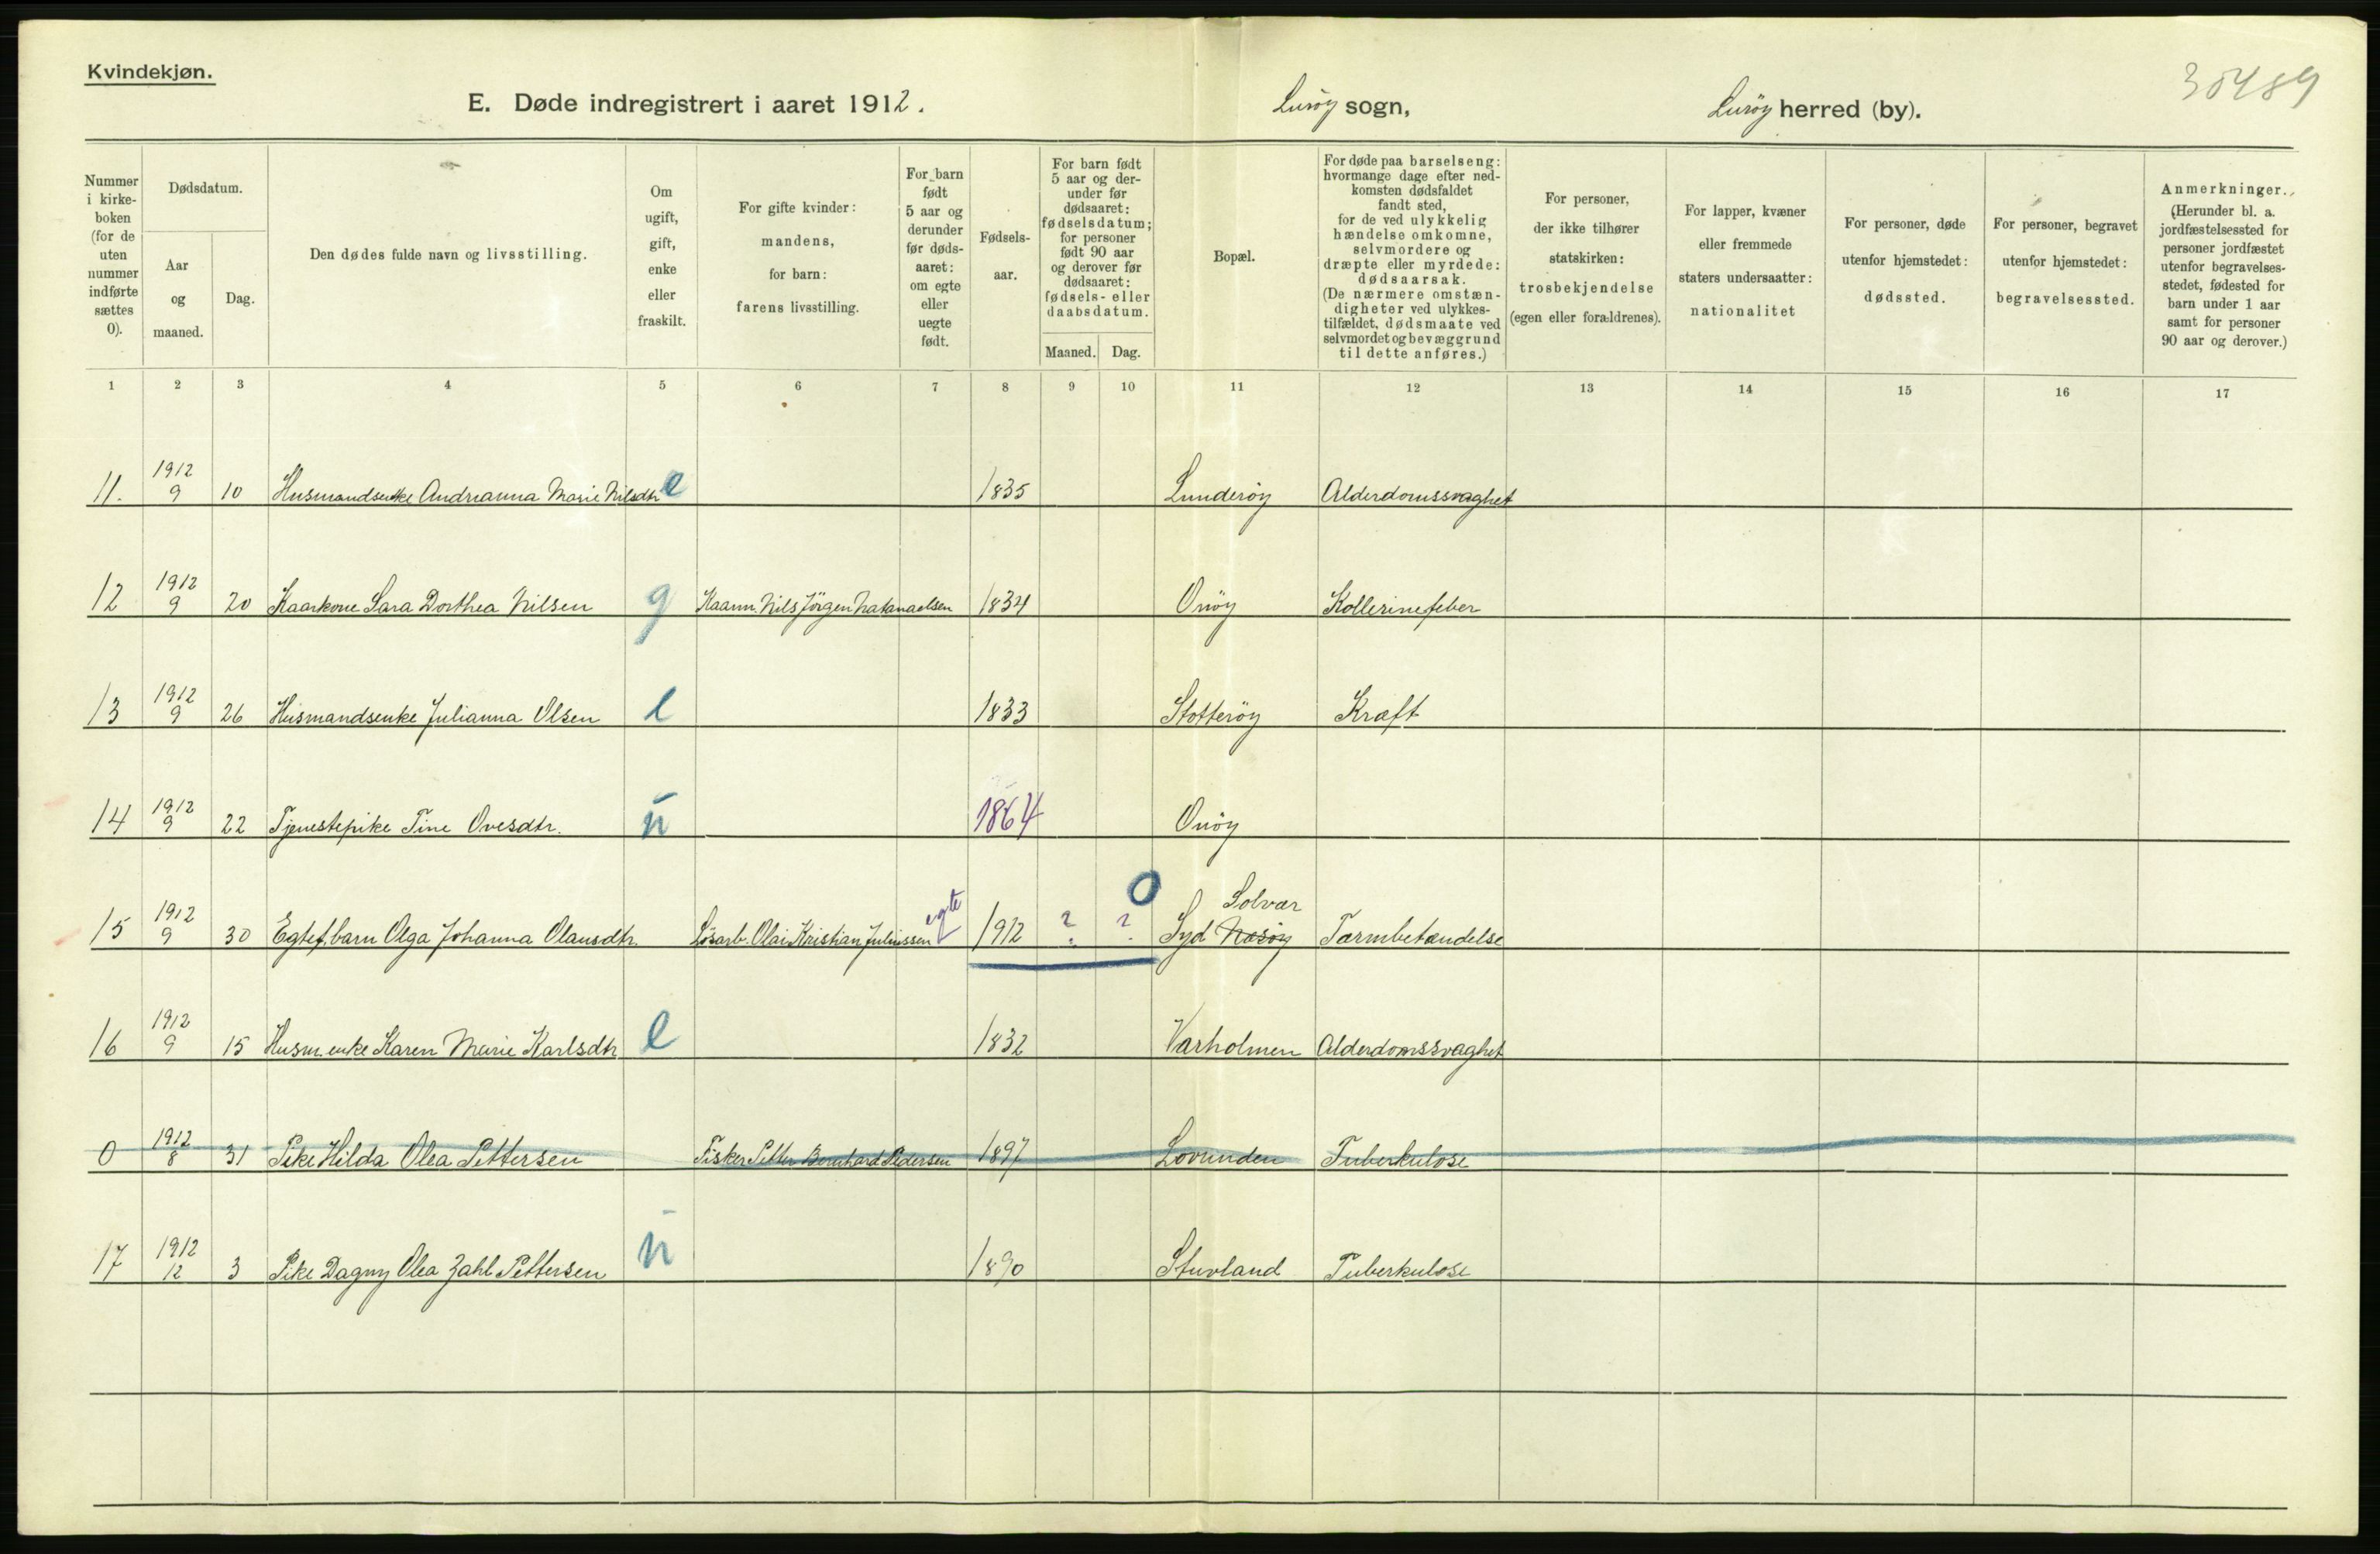 Kvindekjøn.
30489
E. Døde indregistrert i aaret 1912. Lurøy sogn, Lurøy herred (by).
Nummer i kirke-boken (for de uten nummer indførte sættes 0).
Dødsdatum.
Aar og maaned.
Dag.
Den dødes fulde navn og livsstilling.
Om ugift, gift, enke eller fraskilt.
For gifte kvinder: mandens, for barn: farens livsstilling.
For barn født 5 aar og derunder før døds-aaret: om egte eller uegte født.
Fødsels-aar.
For barn født 5 aar og der-under før dødsaaret: fødselsdatum; for personer født 90 aar og derover før dødsaaret: fødsels- eller daabsdatum.
Maaned. Dag.
Bopæl.
For døde paa barselseng: hvormange dage efter ned-komsten dødsfaldet fandt sted, for de ved ulykkelig hændelse omkomne, selvmordere og dræpte eller myrdede: dødsaarsak. (De nærmere omstæn-digheter ved ulykkes-tilfældet, dødsmaate ved selvmordet og bevæggrund til dette anføres.)
For personer, der ikke tilhører statskirken: trosbekjendelse (egen eller forældrenes).
For lapper, kvæner eller fremmede staters undersaatter: nationalitet
For personer, døde utenfor hjemstedet: dødssted.
For personer, begravet utenfor hjemstedet: begravelsessted.
Anmerkninger. (Herunder bl. a. jordfæstelsessted for personer jordfæstet utenfor begravelses-stedet, fødested for barn under 1 aar samt for personer 90 aar og derover.)
1 2 3 4 5 6 7 8 9 10 11 12 13 14 15 16 17
11. 1912 9 10 Husmandsenke Andrianna Marie Nilsdtr e 1835 Lunderöy Alderdomssvaghet
12 1912 9 20 Kaarkone Sara Dorthea Nilsen g Kaarm. Nils Jörgen Natanaelsen 1834 Onöy Kollerinefeber
13 1912 9 26 Husmandsenke Julianna Olsen e 1833 Stotteröy Kræft
14 1912 9 22 Tjenestepike Tine Ovesdtr. ū 1864 Onöy
15 1912 9 30 Egtef. barn Olga Johanna Olausdtr. Lösarb. Olai Kristian Juliussen egte 1912 ? ? O Syd Nesöy Solvær Tarmbetændelse
16 1912 9 15 Husm. enke Karen Marie Karlsdtr e 1832 Varholmen Alderdomssvaghet
0 1912 8 31 Pike Hilda Olea Pettersen Fisker Petter Bernhard Pedersen 1897 Lovunden Tuberkulose
17 1912 12 3 Pike Dagny Olea Zahl Pettersen ū 1890 Stuvland Tuberkulose